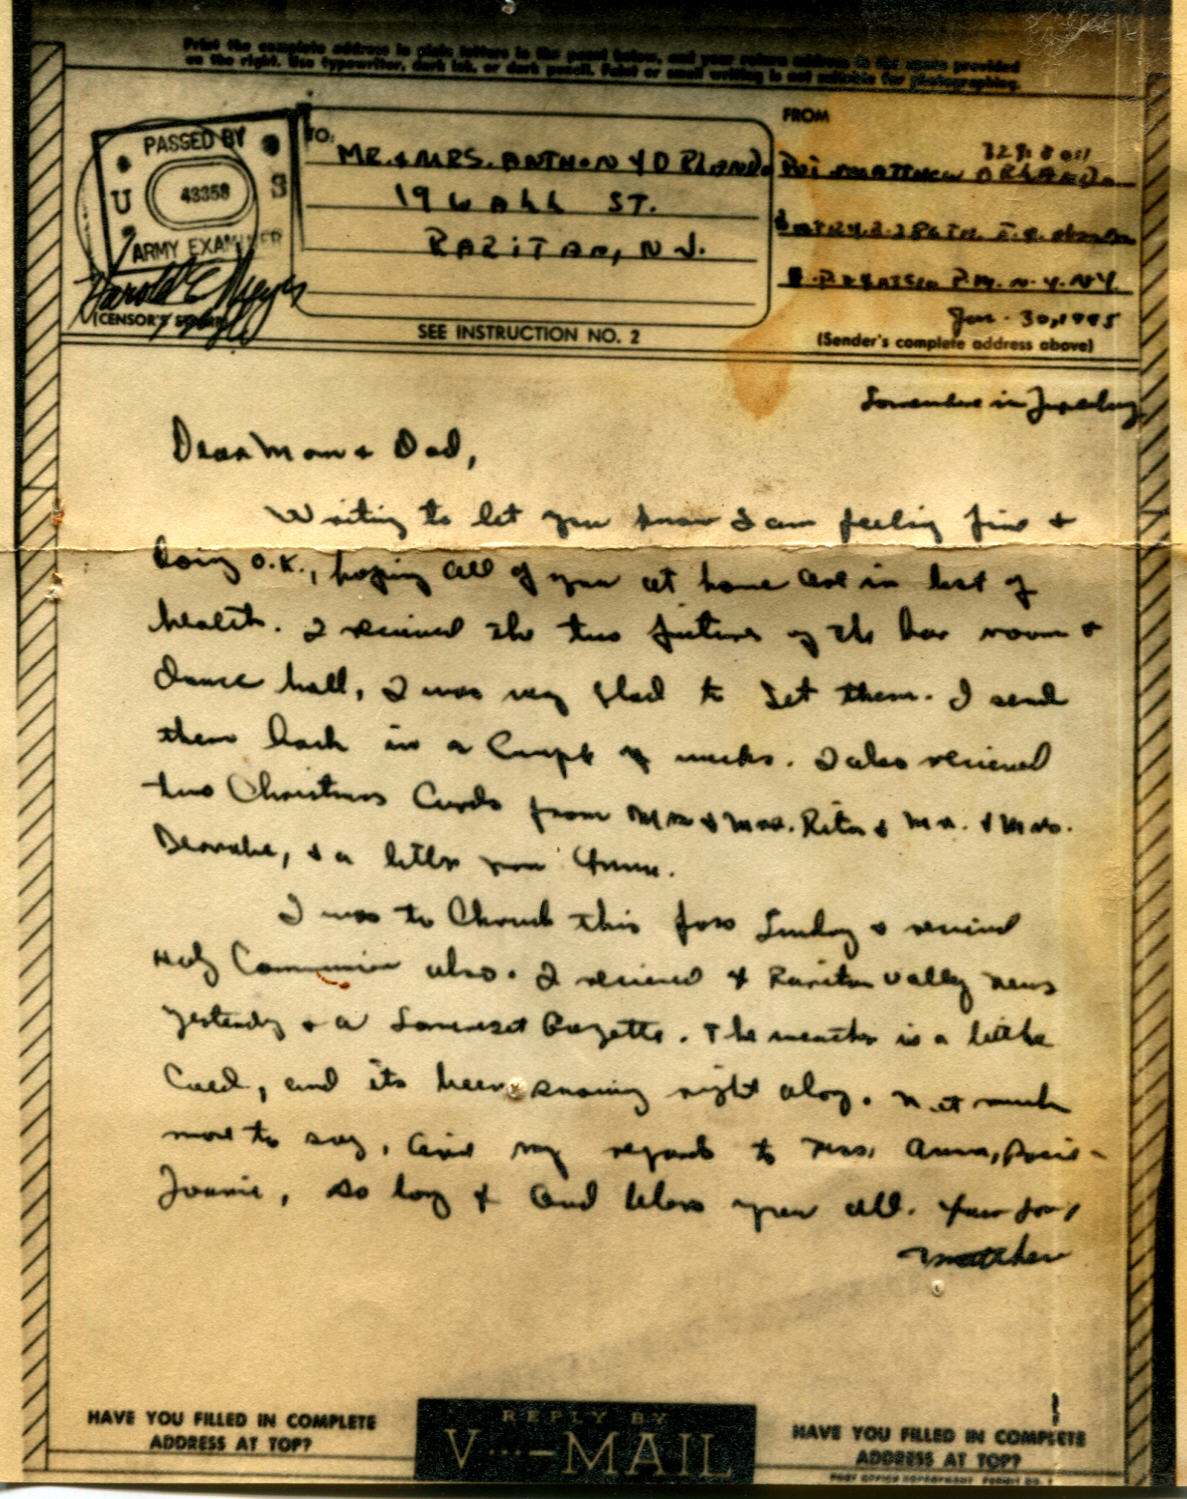 Print the complete address in plain letters in the panel below, and your return address in the space provided
on the right. Use typewriter, dark ink, or dark pencil. Faint or small writing is not suitable for photographing.
PASSED BY
U S
43358
ARMY EXAMINER
(CENSOR'S STAMP)
TO:
MR. & MRS. ANTHONY ORLANDO
19 WALL ST.
RARITAN, N.J.
SEE INSTRUCTION NO. 2
FROM
Pvt. MATTHEW ORLANDO
N.Y. N.Y.
Jan. 30, 1945
(Sender's complete address above)
Somewhere in
Dear Mom & Dad,
Writing to let you know I am feeling fine &
doing O.K., hoping all of you at home are in best of
health. I received the two pictures of the bar room &
dance hall, I was very glad to get them. I send
them back in a couple of weeks. I also received
two Christmas Cards from Mr & Mrs. Rita & Mr. & Mrs.
& a letter from
I was to Church this pass Sunday & received
Holy Communion also. I received & Raritan Valley news
yesterday & a Somerset Gazette. The weather is a little
Cold, and its been snowing right along. Not much
more to say, Give my regards to Anna, Rosie -
Joanie, so long & God bless you all. Your son,
Matthew
HAVE YOU FILLED IN COMPLETE
ADDRESS AT TOP?
REPLY BY
V···—MAIL
HAVE YOU FILLED IN COMPLETE
ADDRESS AT TOP?
POST OFFICE DEPARTMENT PERMIT NO. 1